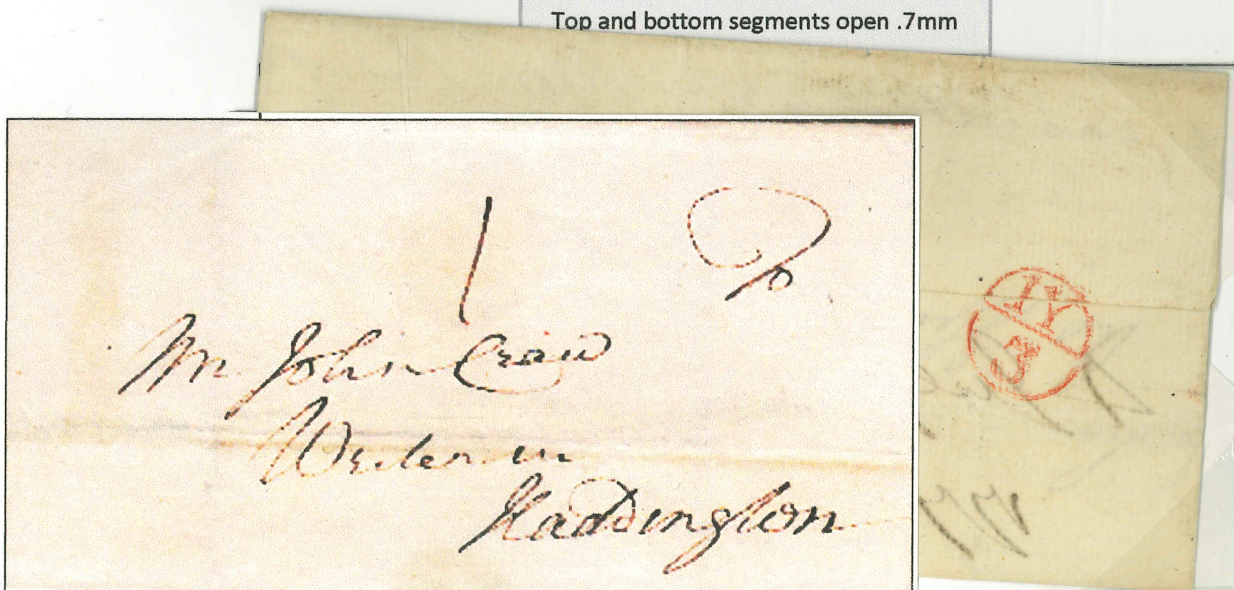 Top and bottom segments open .7mm
1
Mr John Craw
Writer in
Haddington
IY
3